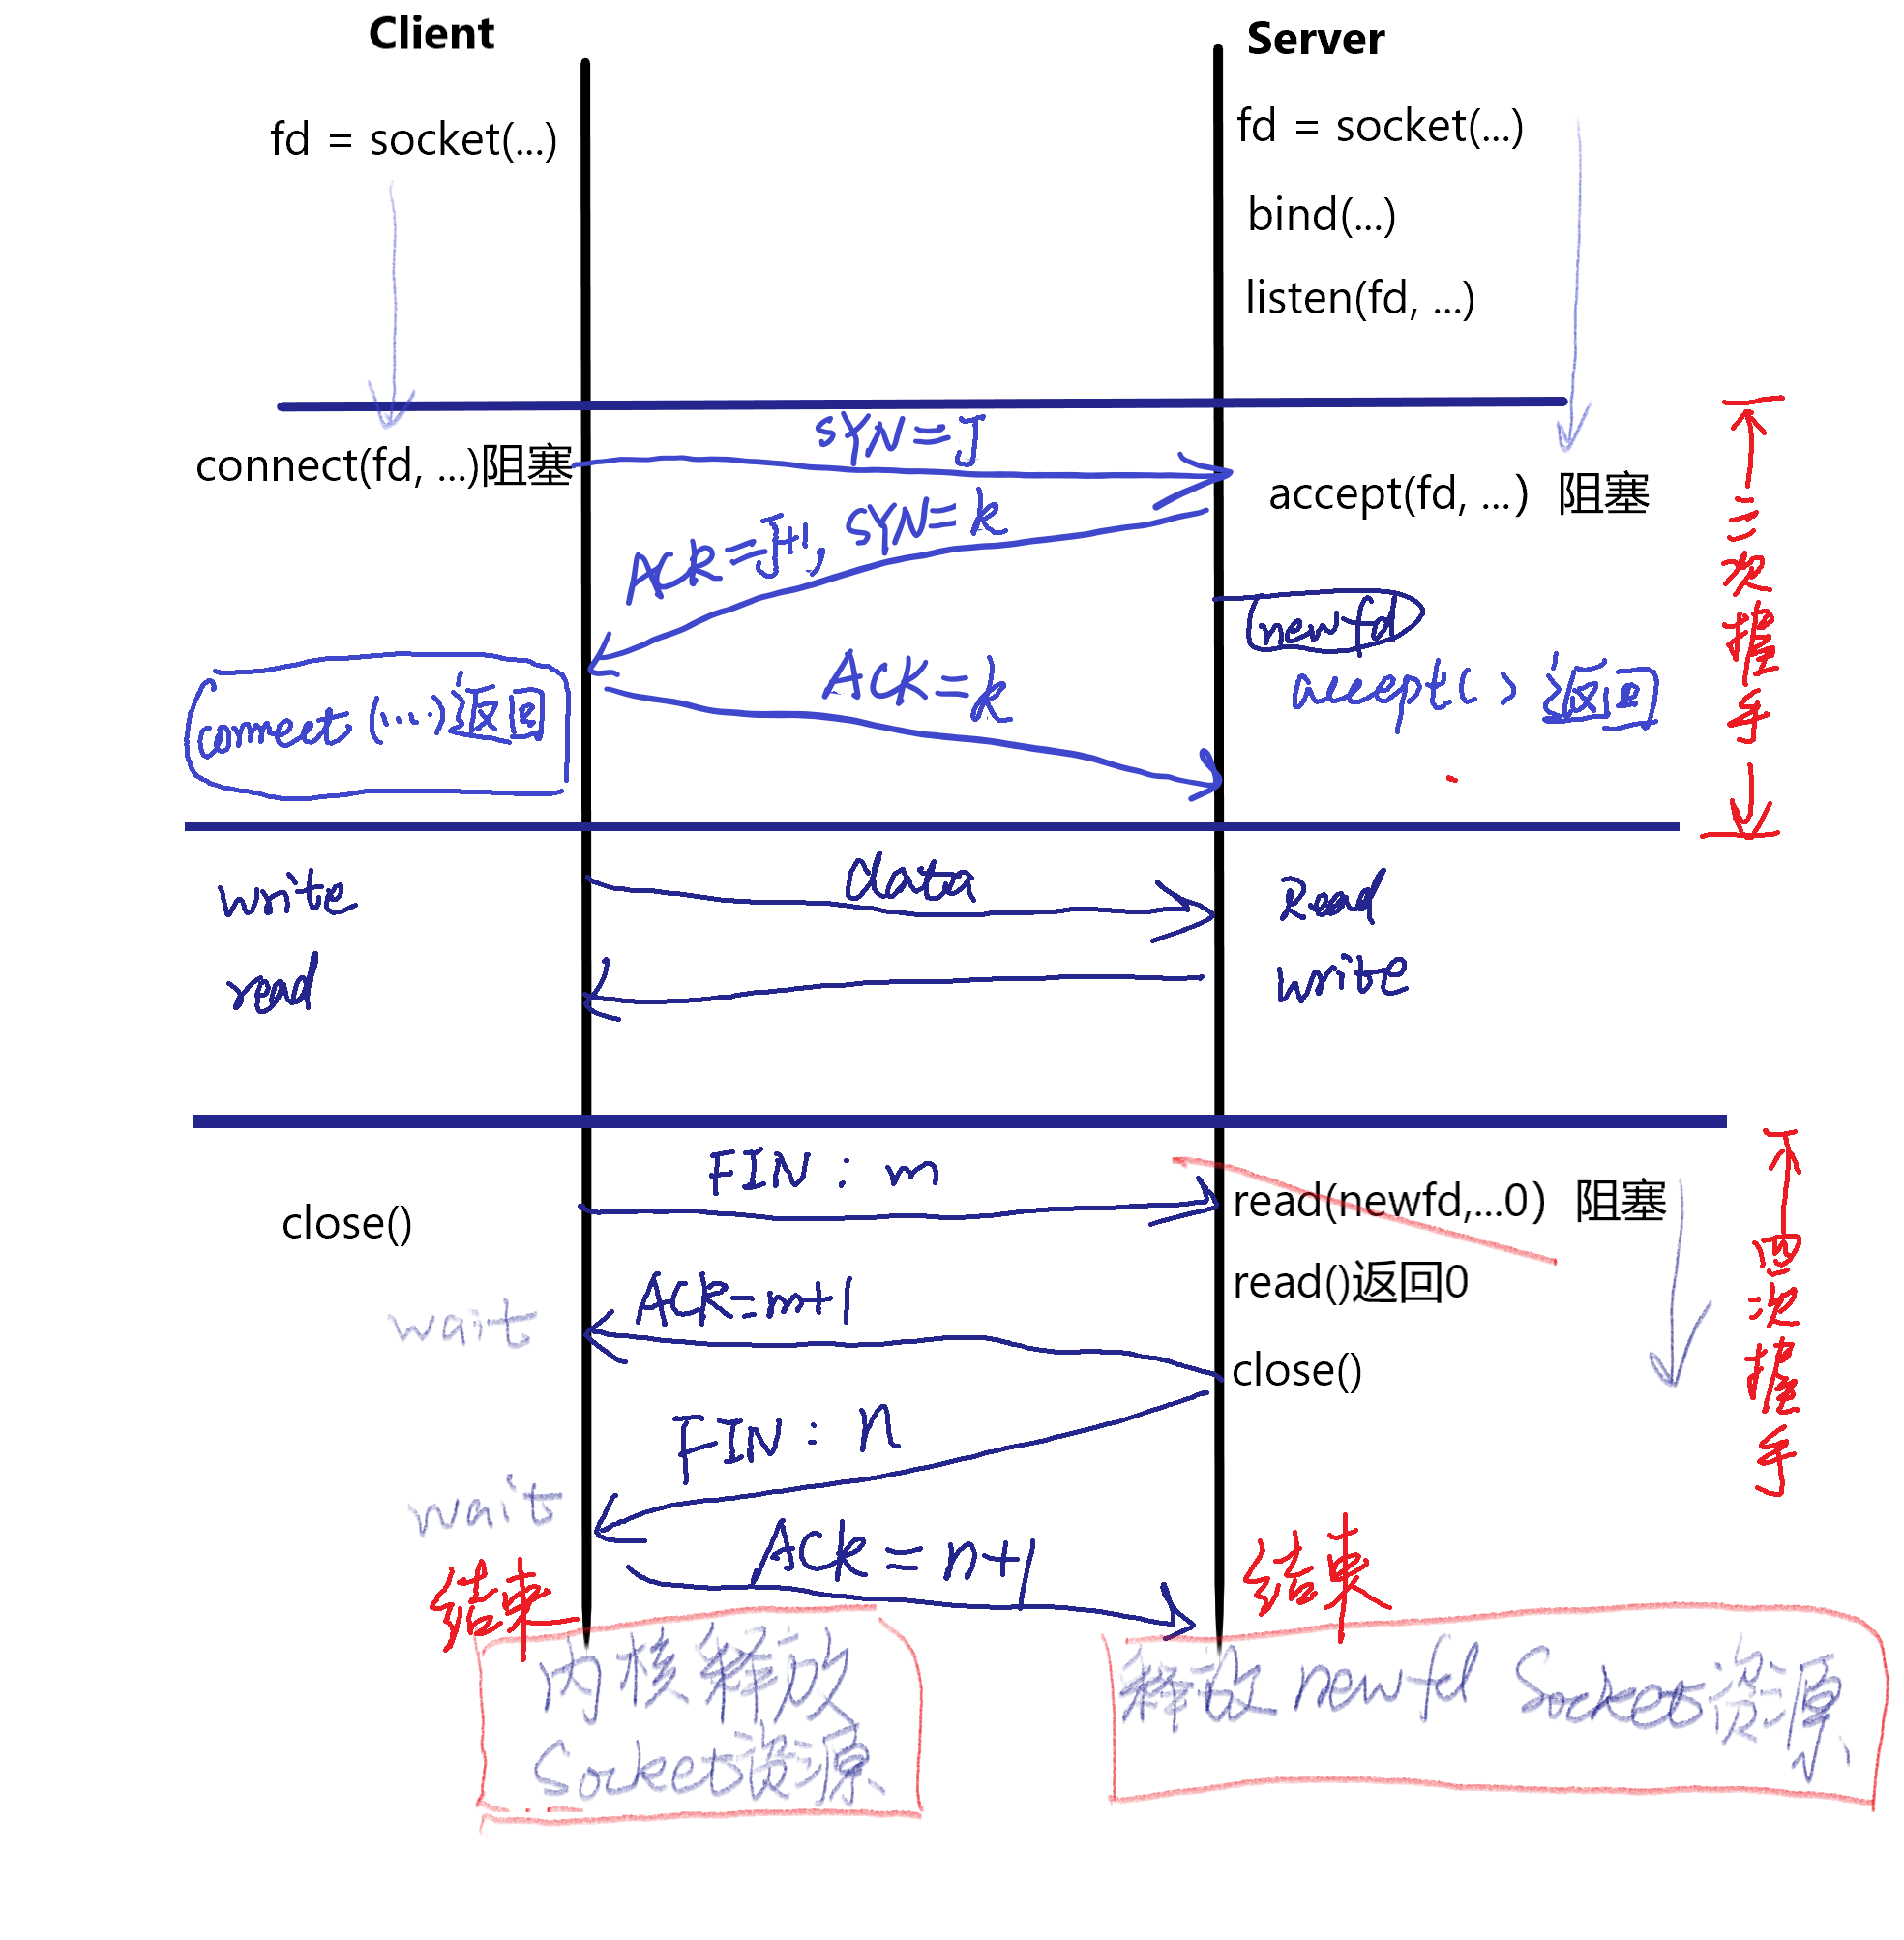 Client
Server
fd = socket(...)
fd = socket(...)
bind(...)
listen(fd, ...)
SYN=J
connect(fd, ...)阻塞
accept(fd, ...) 阻塞
ACK=J+1, SYN=k
newfd
ACK=k
accept()返回
connect(....)返回
三次握手
write
data
Read
read
write
FIN: m
close()
read(newfd,...0) 阻塞
ACK=m+1
read()返回0
wait
close()
FIN: n
四次握手
wait
ACK=n+1
结束
结束
内核释放
Socket资源
释放newfd Socket资源